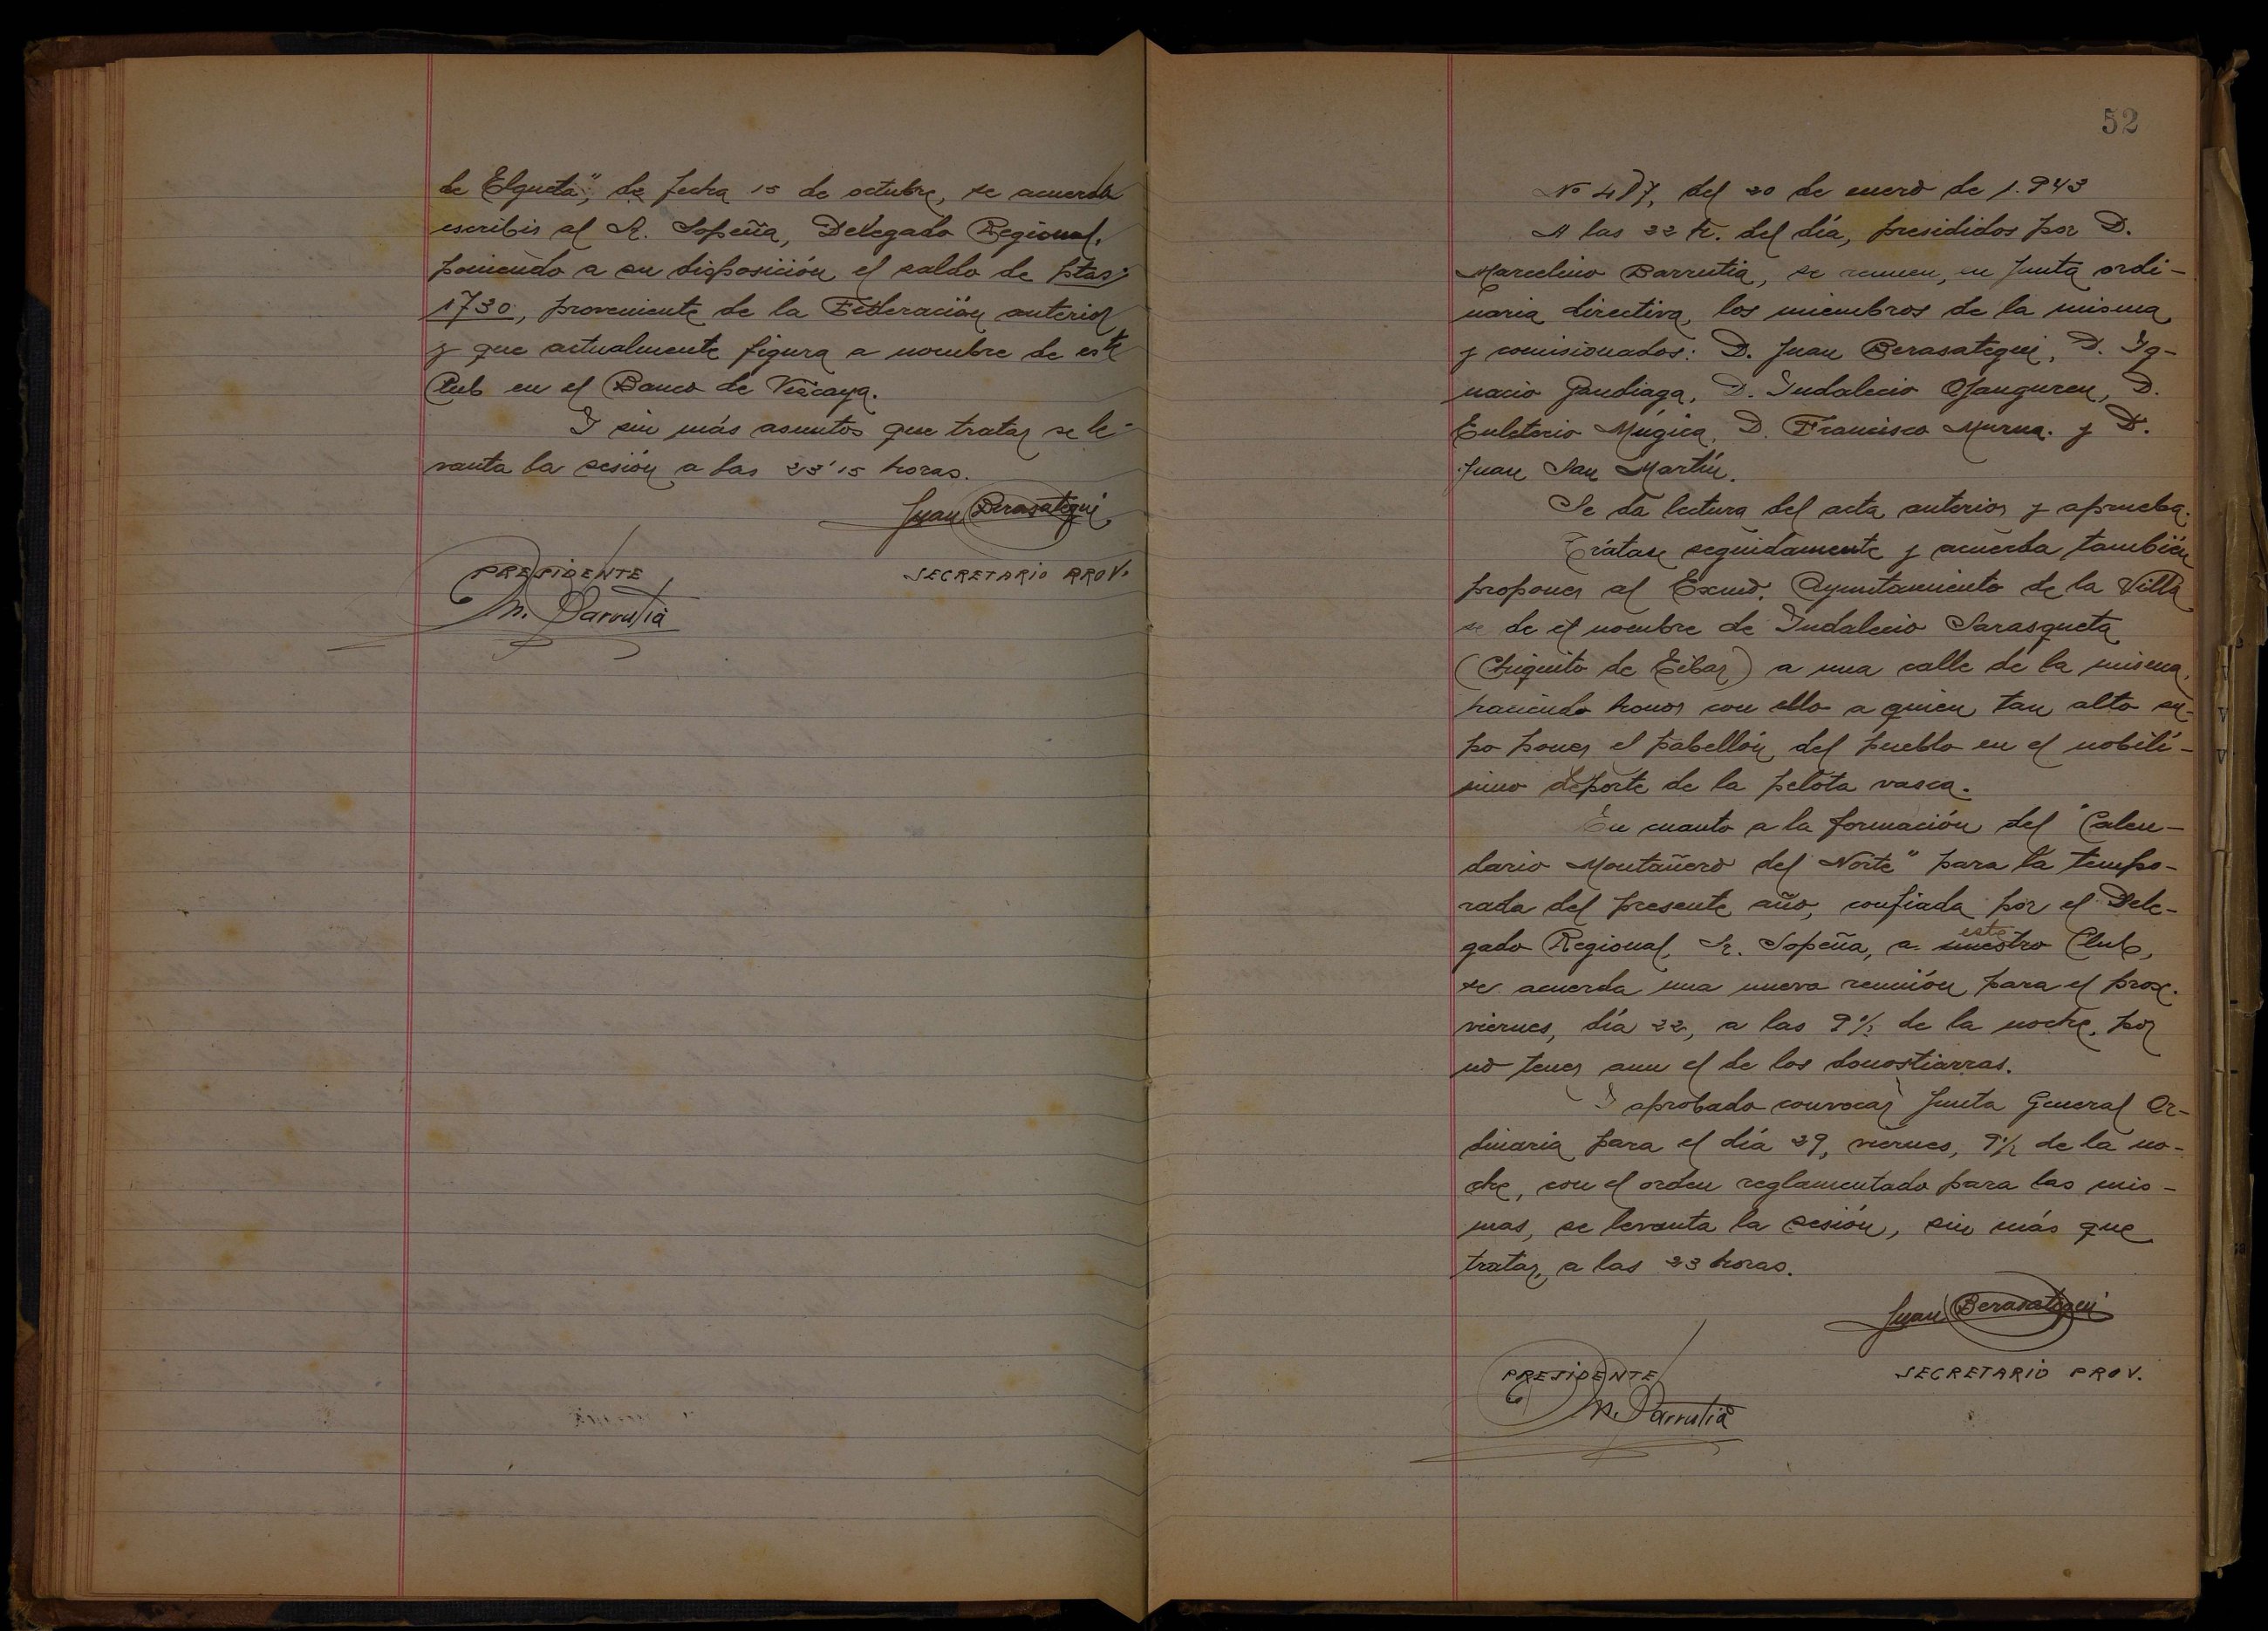 de Elgueta", de fecha 15 de octubre, se acuerda
escribir al Sr. Sopeña, Delegado Regional,
poniendo a su disposición el saldo de ptas:
1730, proveniente de la Federación anterior
y que actualmente figura a nombre de este
Club en el Banco de Vizcaya.
Y sin más asuntos que tratar se le-
vanta la sesión a las 23'15 horas.
Juan Berasategui
PRESIDENTE
SECRETARIO PROV.
M. Barrutia
52
Nº 417, del 20 de enero de 1.943
A las 22 h. del día, presididos por D.
Marcelino Barrutia, se reunen, en Junta ordi-
naria directiva, los miembros de la misma,
y comisionados: D. Juan Berasategui, D. Ig-
nacio Gandiaga, D. Indalecio Ojanguren, D.
Euleterio Múgica, D. Francisco Murua. y D.
Juan San Martín.
Se da lectura del acta anterior y aprueba.
Trátase seguidamente y acuerda también
proponer al Excmo. Ayuntamiento de la Villa
se de el nombre de Indalecio Sarasqueta
(Chiquito de Eibar) a una calle de la misma,
haciendo honor con ello a quien tan alto su-
po poner el pabellón del pueblo en el nobilí-
simo deporte de la pelota vasca.
En cuanto a la formación del "Calen-
dario Montañero del Norte" para la tempo-
rada del presente año, confiada por el Dele-
gado Regional, Sr. Sopeña, a nuestro este Club,
se acuerda una nueva reunión para el prox.
viernes, día 22, a las 9½ de la noche, por
no tener aun el de los donostiarras.
Y aprobado convocar Junta General Or-
dinaria para el día 29, viernes, 9½ de la no-
che, con el orden reglamentado para las mis-
mas, se levanta la sesión, sin más que
tratar, a las 23 horas.
Juan Berasategui
PRESIDENTE
SECRETARIO PROV.
M. Barrutia